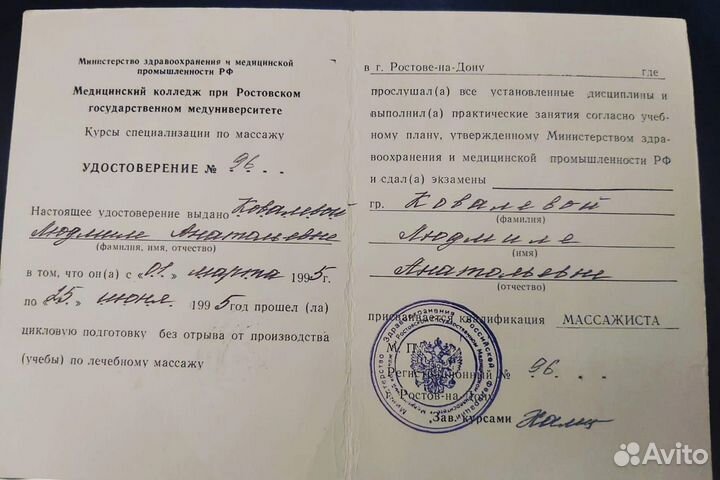 Министерство здравоохранения и медицинской
промышленности РФ
Медицинский колледж при Ростовском
государственном медуниверситете
Курсы специализации по массажу
УДОСТОВЕРЕНИЕ № 96
Настоящее удостоверение выдано Ковалевой
Людмиле Анатольевне
(фамилия, имя, отчество)
в том, что он(а) с «01» марта 1995г.
по «25» июня 1995 год прошел (ла)
цикловую подготовку без отрыва от производства
(учебы) по лечебному массажу
в г. Ростове-на-Дону где
прослушал(а) все установленные дисциплины и
выполнил(а) практические занятия согласно учеб-
ному плану, утвержденному Министерством здра-
воохранения и медицинской промышленности РФ
и сдал(а) экзамены
гр. Ковалевой
(фамилия)
Людмиле
(имя)
Анатольевне
(отчество)
присваивается квалификация МАССАЖИСТА
М. П.
Регистрационный № 96
Ростов-на-Дону
Зав. курсами
Министерство Здравоохранения Российской Федерации
Avito